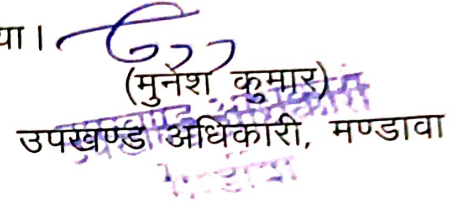 या।
(मुनेश कुमार)
उपखण्ड अधिकारी, मण्डावा